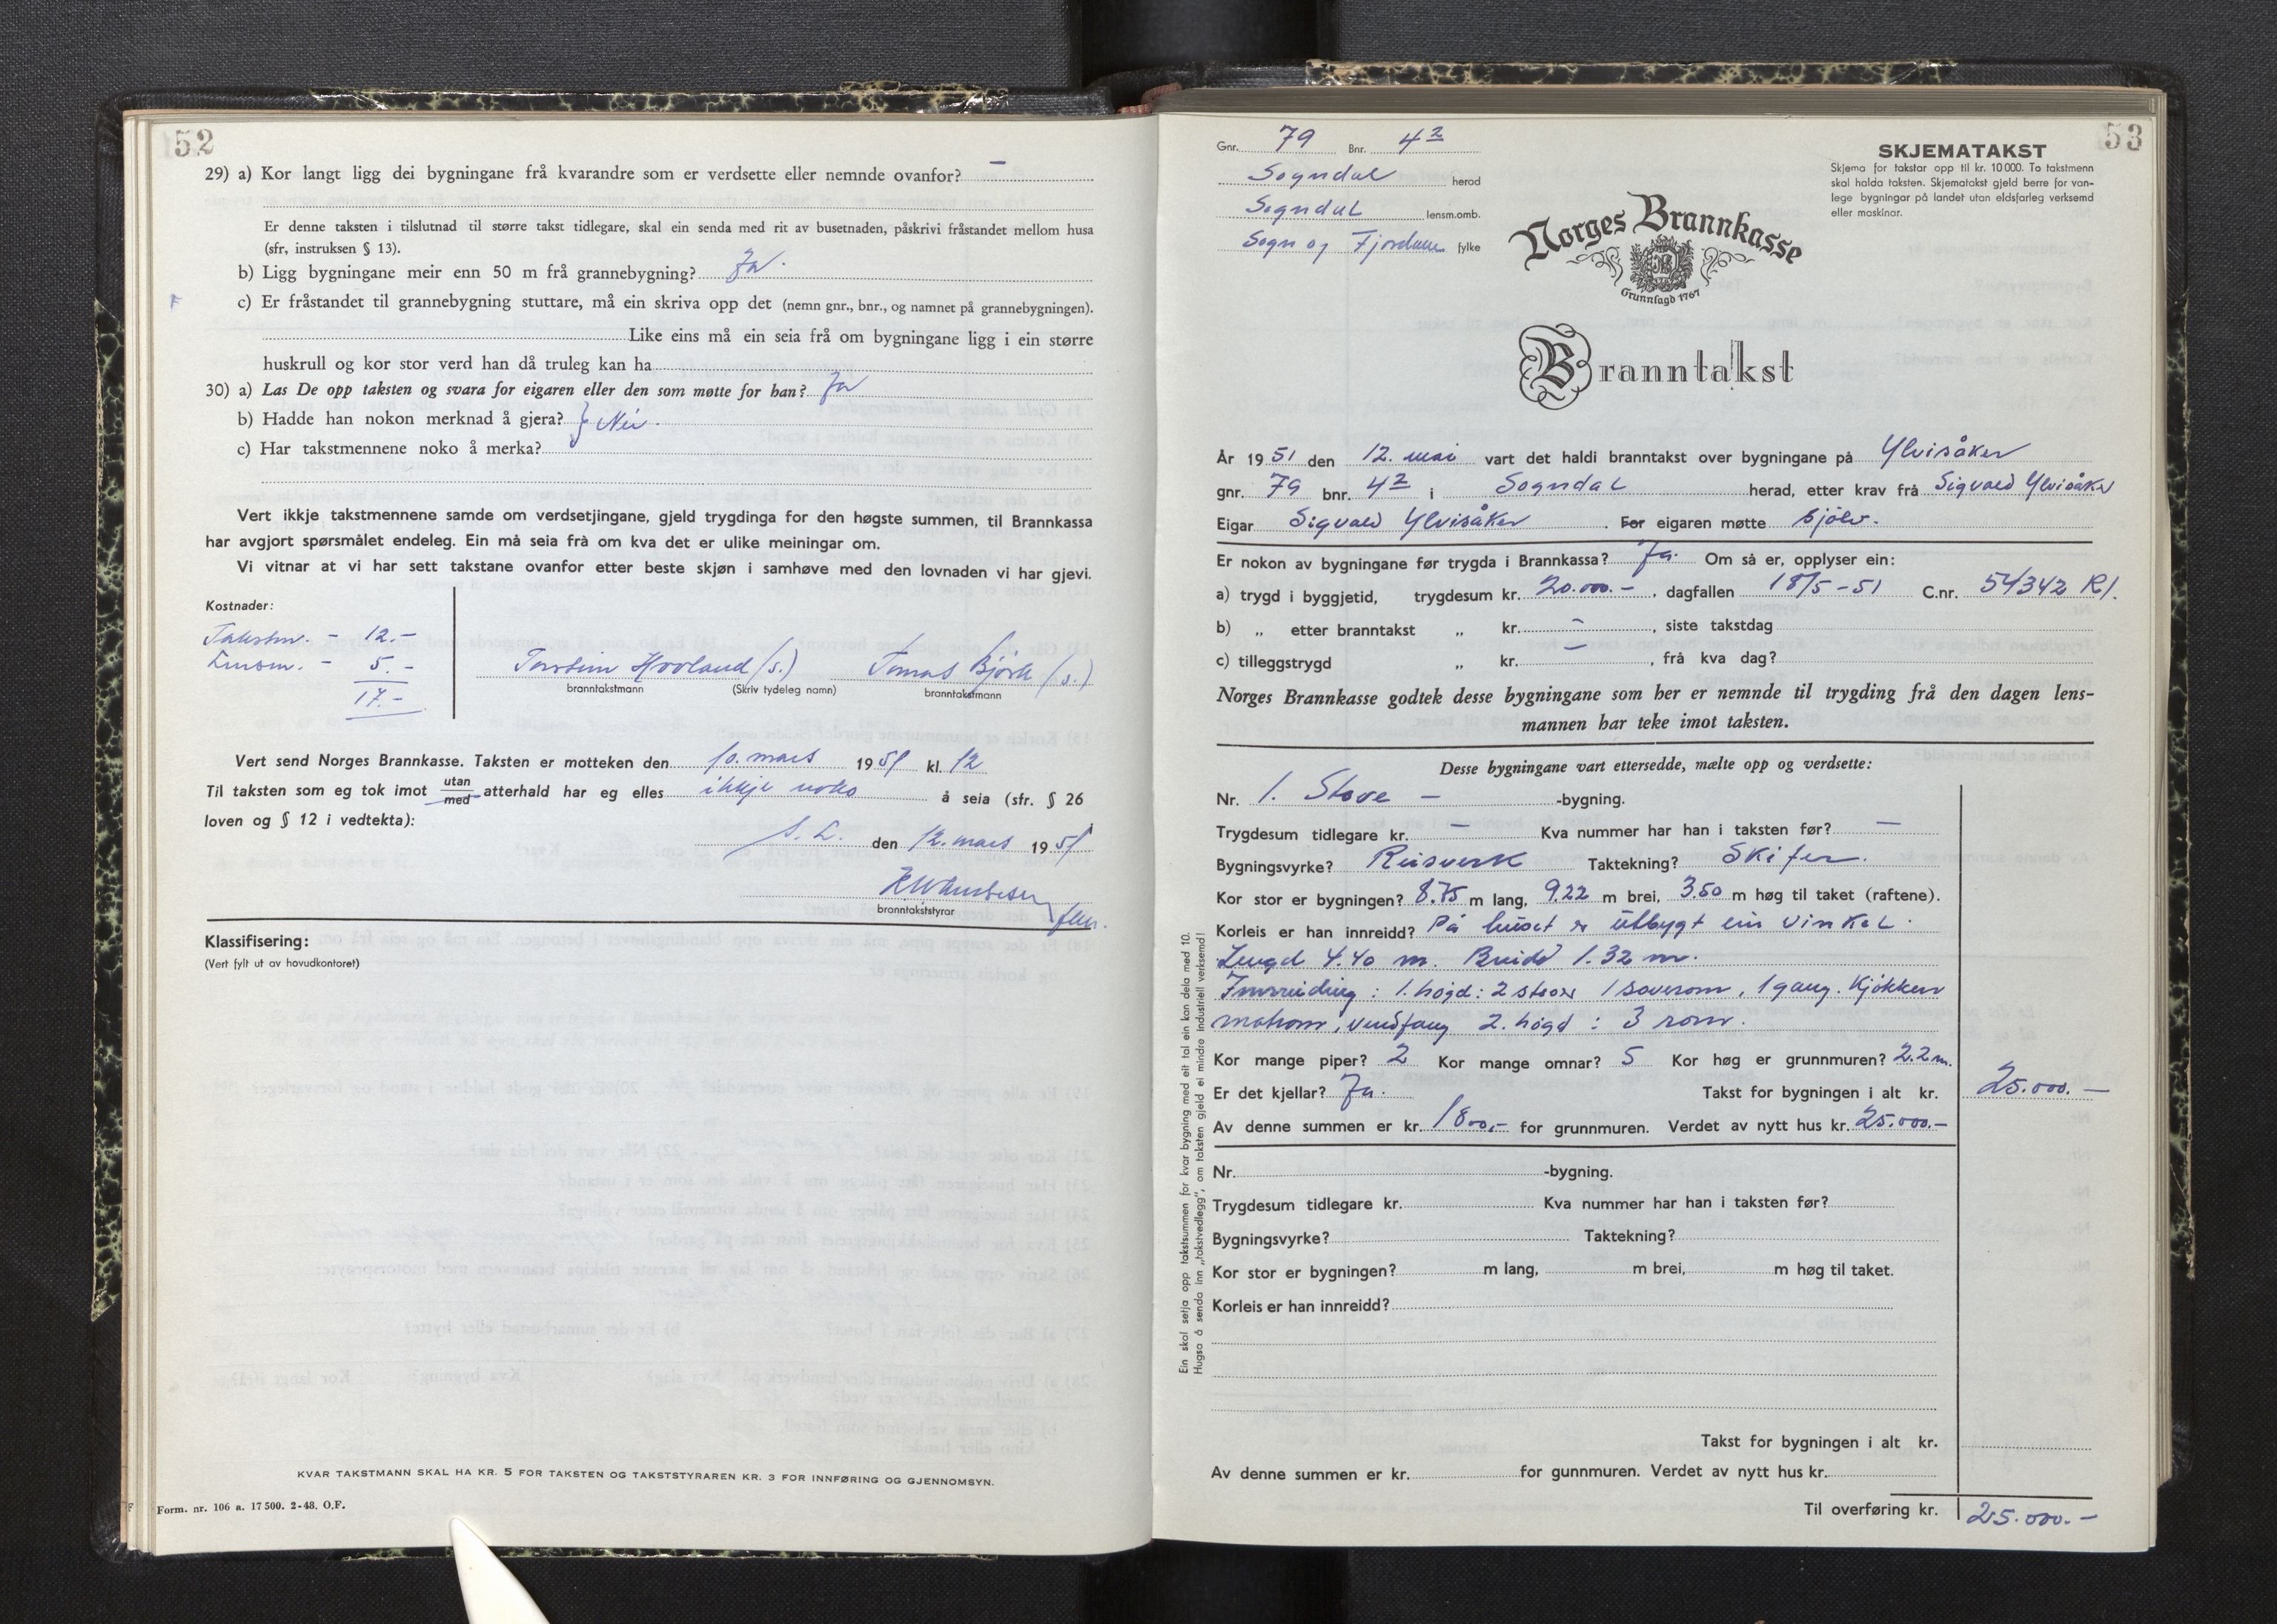 52
29) a) Kor langt ligg dei bygningane frå kvarandre som er verdsette eller nemnde ovanfor? —
Er denne taksten i tilslutnad til større takst tidlegare, skal ein senda med rit av busetnaden, påskrivi fråstandet mellom husa
(sfr, instruksen § 13).
b) Ligg bygningane meir enn 50 m frå grannebygning? Ja.
c) Er fråstandet til grannebygning stuttare, må ein skriva opp det (nemn gnr., bnr., og namnet på grannebygningen).
Like eins må ein seia frå om bygningane ligg i ein større
huskrull og kor stor verd han då truleg kan ha
30) a) Las De opp taksten og svara for eigaren eller den som møtte for han? Ja
b) Hadde han nokon merknad å gjera? } Nei.
c) Har takstmennene noko å merka?
Vert ikkje takstmennene samde om verdsetjingane, gjeld trygdinga for den høgste summen, til Brannkassa
har avgjort spørsmålet endeleg. Ein må seia frå om kva det er ulike meiningar om.
Vi vitnar at vi har sett takstane ovanfor etter beste skjøn i samhøve med den lovnaden vi har gjevi.
Kostnader:
Takstm. – 12.–
Lensm. – 5.–
17.–
Torstein Hovland (s.) Tomas Bjørk (s.)
branntakstmann (Skriv tydeleg namn) branntakstmann
Vert send Norges Brannkasse. Taksten er motteken den 10. mars 1951 kl. 12
Til taksten som eg tok imot utan/med atterhald har eg elles ikkje noko å seia (sfr. § 26
loven og § 12 i vedtekta):
S. L. den 12. mars 1951
branntakststyrar
Klassifisering:
(Vert fylt ut av hovudkontoret)
KVAR TAKSTMANN SKAL HA KR. 5 FOR TAKSTEN OG TAKSTSTYRAREN KR. 3 FOR INNFØRING OG GJENNOMSYN.
Form. nr. 106 a. 17 500. 2-48. O.F.
53
Gnr. 79 Bnr. 42
Sogndal herod
Sogndal lensm.omb.
Sogn og Fjordane fylke
SKJEMATAKST
Skjema for takstar opp til kr. 10 000. To takstmenn
skal halda taksten. Skjematakst gjeld berre for van-
lege bygningar på landet utan eldsfarleg verksemd
eller maskinar.
Norges Brannkasse
Grunnlagd 1767
Branntakst
År 1951 den 12. mai vart det haldi branntakst over bygningane på Ylvisåker
gnr. 79 bnr. 42 i Sogndal herad, etter krav frå Sigvald Ylvisåker
Eigar Sigvald Ylvisåker. For eigaren møtte sjølv.
Er nokon av bygningane før trygda i Brannkassa? Ja. Om så er, opplyser ein:
a) trygd i byggjetid, trygdesum kr. 20.000.–, dagfallen 18/5–51 C.nr. 54342 Rl.
b) „ etter branntakst „ kr. –, siste takstdag
c) tilleggstrygd „ kr. –, frå kva dag?
Norges Brannkasse godtek desse bygningane som her er nemnde til trygding frå den dagen lens-
mannen har teke imot taksten.
Desse bygningane vart ettersedde, mælte opp og verdsette:
Nr. 1. Stove – -bygning.
Trygdesum tidlegare kr. – Kva nummer har han i taksten før? –
Bygningsvyrke? Reisverk Taktekning? Skifer.
Kor stor er bygningen? 8.75 m lang, 9.22 m brei, 3.50 m høg til taket (raftene).
Korleis er han innreidd? På huset er utbygt ein vinkel.
Lengd 4.40 m. Breidd 1.32 m.
Innreiding: 1. høgd: 2 stover 1 soverom, 1 gang. Kjøkken
matrom, vindfang 2. høgd: 3 rom.
Kor mange piper? 2 Kor mange omnar? 5 Kor høg er grunnmuren? 2.2 m.
Er det kjellar? Ja. Takst for bygningen i alt kr. 25.000.–
Av denne summen er kr. 1800,– for grunnmuren. Verdet av nytt hus kr. 25.000.–
Nr. -bygning.
Trygdesum tidlegare kr. Kva nummer har han i taksten før?
Bygningsvyrke? Taktekning?
Kor stor er bygningen? m lang, m brei, m høg til taket.
Korleis er han innreidd?
Takst for bygningen i alt kr.
Av denne summen er kr. for gunnmuren. Verdet av nytt hus kr.
Til overføring kr. 25.000.–
Ein skal setja opp takstsummen for kvar bygning med eit tal ein kan dela med 10.
Hugsa å senda inn „takstvedlegg", om taksten gjeld ei mindre industriell verksemd!